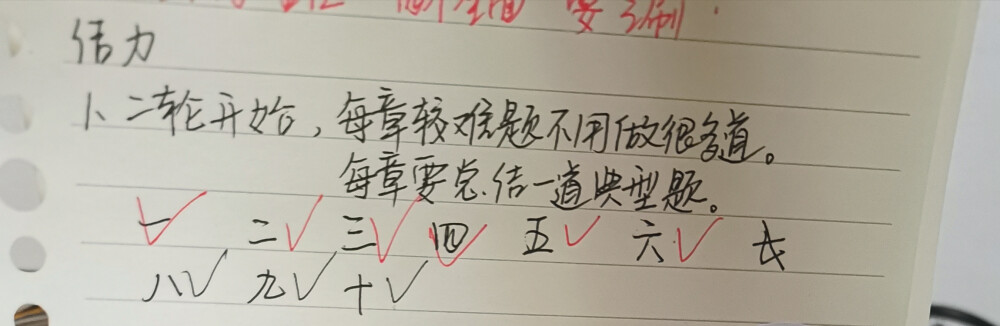 要刷
结力
1、二轮开始，每章较难题不用做很多道。
每章要总结一道典型题。
一✓ 二✓ 三✓ 四✓ 五✓ 六✓ 七
八✓ 九✓ 十✓